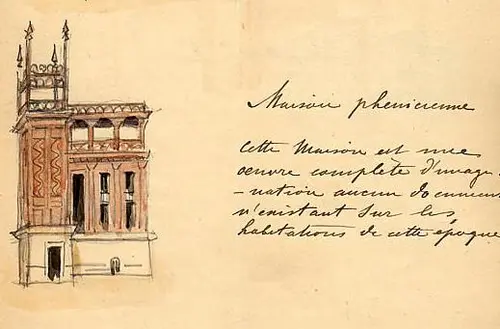 Maison phenicienne
Cette Maison est une
œuvre complète d'imagi
-nation aucun documen
n'existant sur les
habitations de cette époque